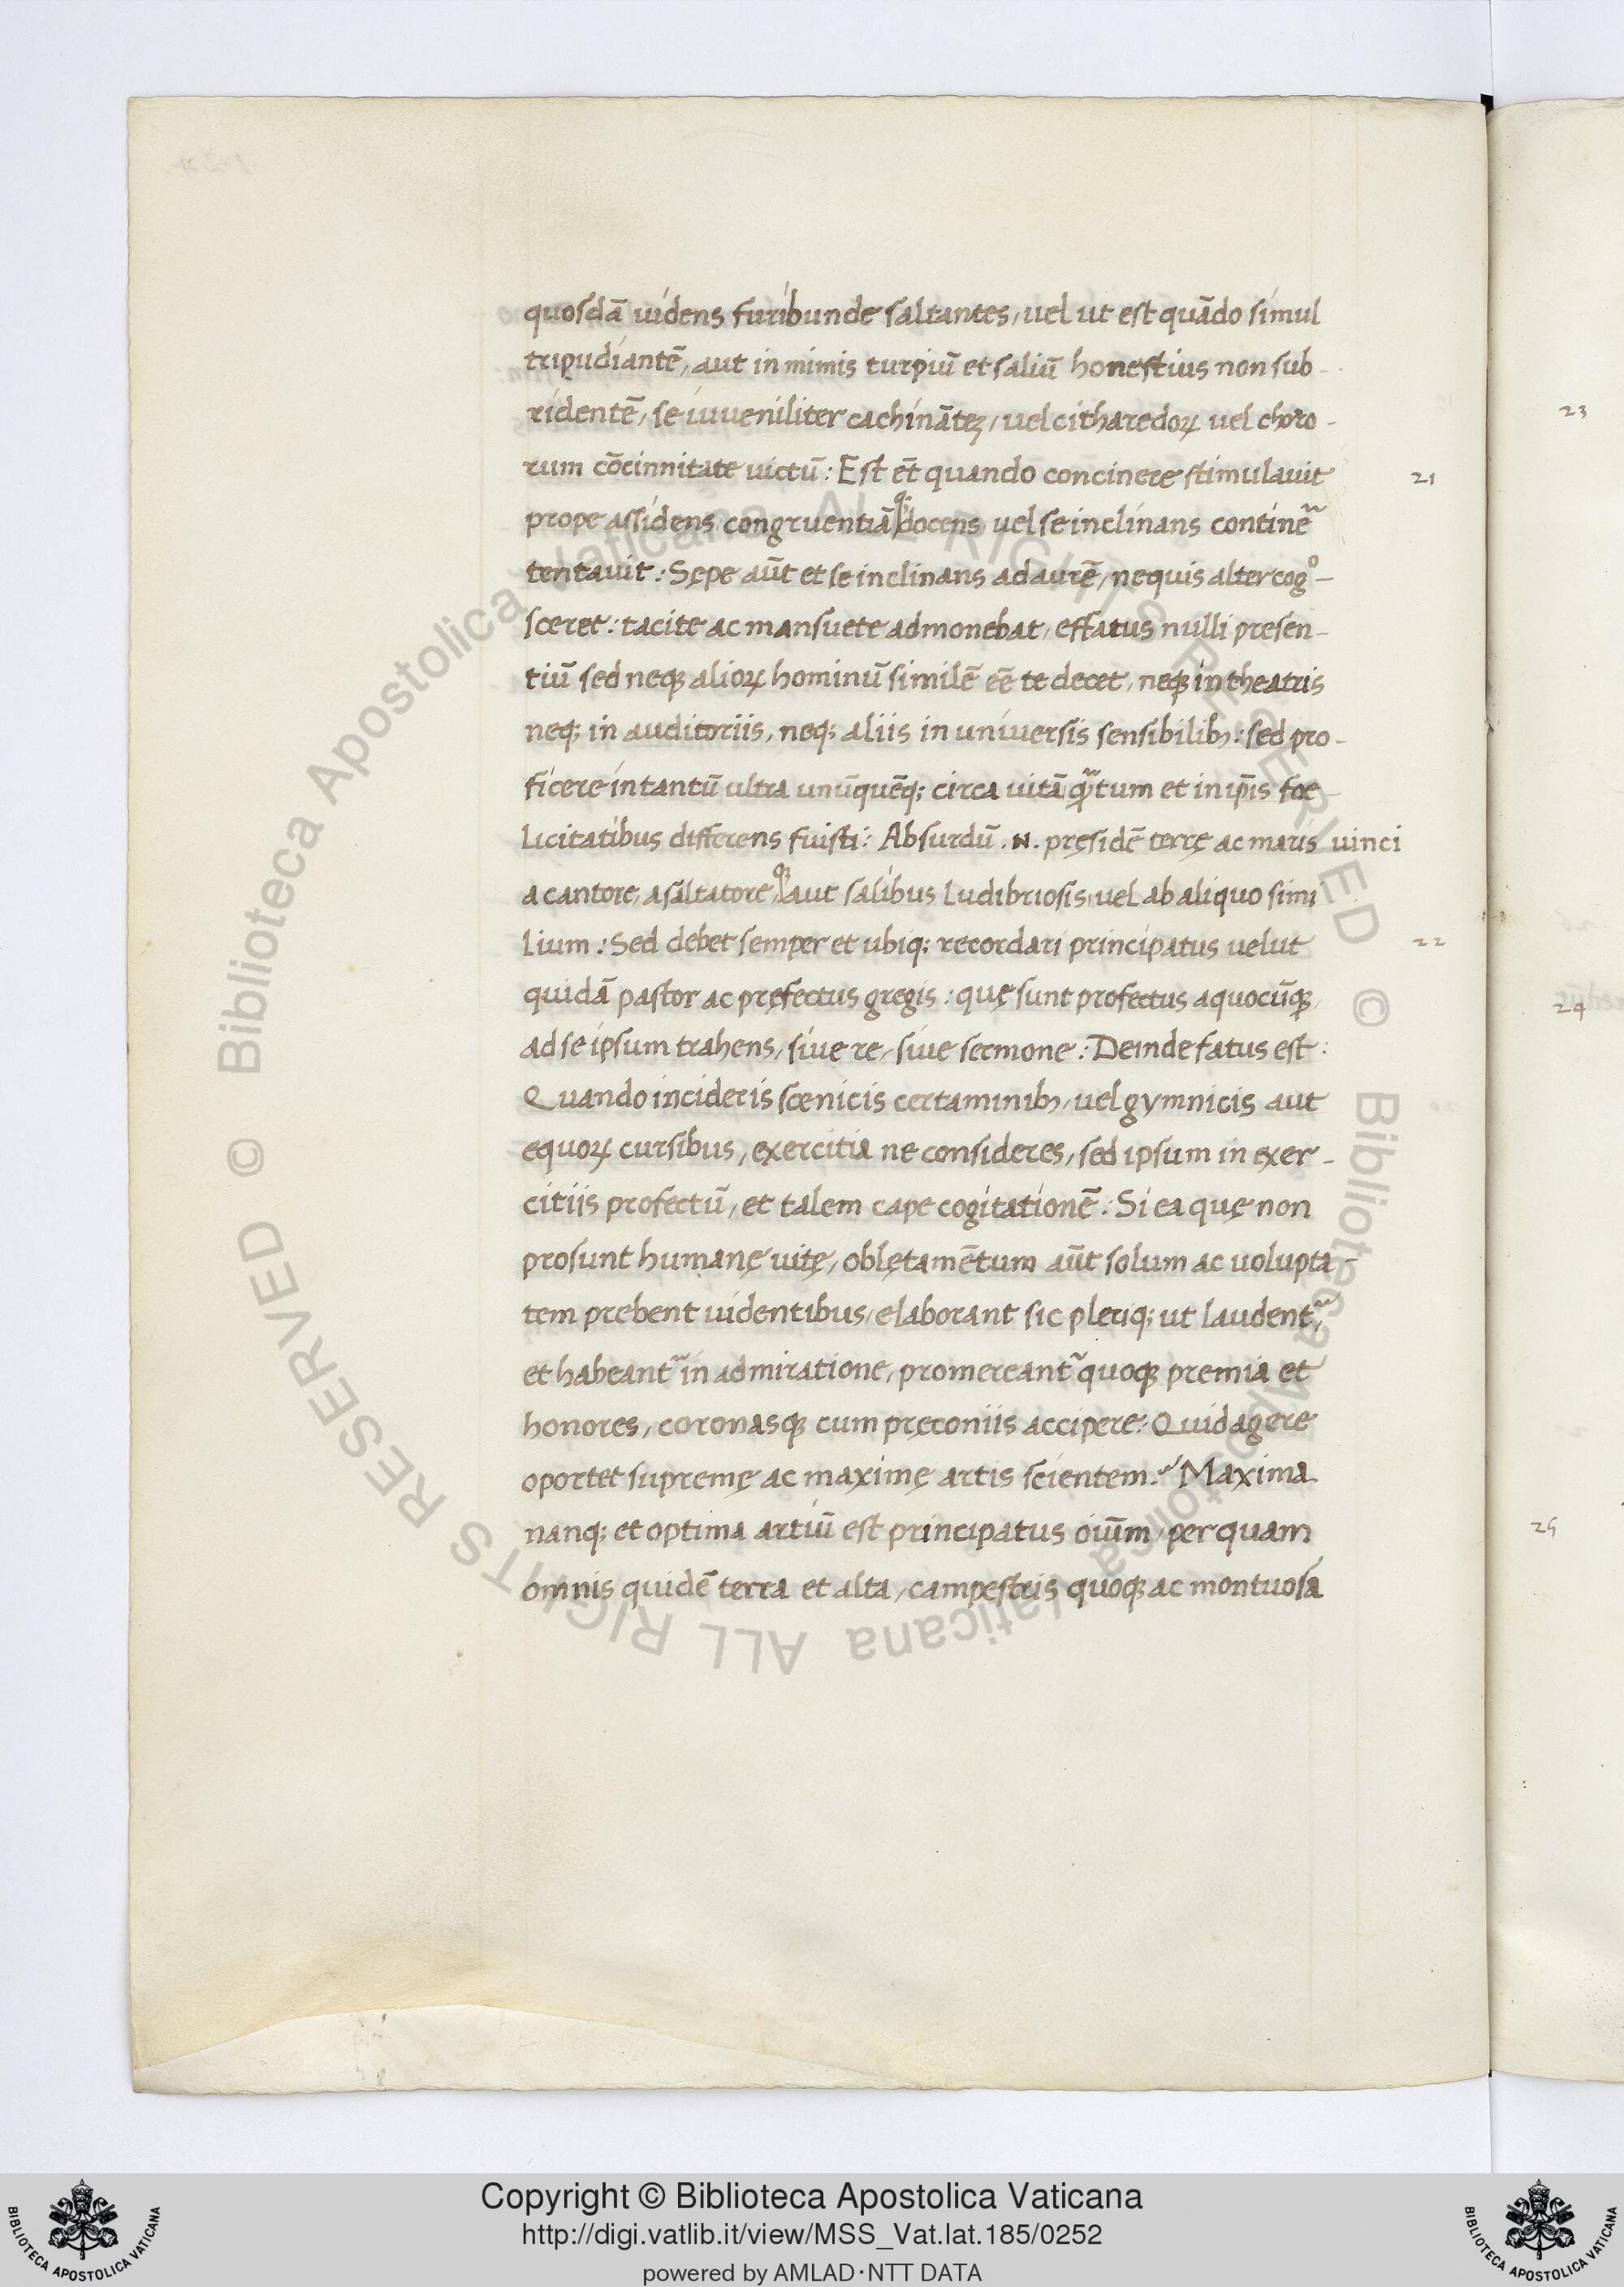 quosdā uidens furibunde saltantes, uel ut est quādo simul
tripudiantē, aut in mimis turpiū et saliū honestius non sub-
ridentē, se iuueniliter cachinātez, uel citharedoꝝ uel choro-
rum cōcinnitate uictū: Est et̄ quando concinere stimulauit
21
prope assidens congruentiā qꝫ docens uel se inclinans continē
tentauit: Sępe aūt et se inclinans ad aurē, ne quis alter cog°-
sceret: tacite ac mansuete admonebat, effatus nulli presen-
tiū sed neqꝫ alioꝝ hominū similē eē te decet, neqꝫ in theatris
neqꝫ in auditoriis, neqꝫ aliis in uniuersis sensibilibꝫ: sed pro-
ficere in tantū ultra unūquēqꝫ circa uitā qᷓtum et in ip̄is foe-
licitatibus differens fuisti: Absurdū .N. pręsidē terrę ac maris uinci
a cantore, a saltatore, qꝫ aut salibus ludibriosis, uel ab aliquo simi
lium: Sed debet semper et ubiqꝫ recordari principatus uelut
22
quidā pastor ac pręfectus gregis: quę sunt profectus a quocūqꝫ,
ad se ipsum trahens, siue re, siue sermone: Deinde fatus est:
Quando incideris scenicis certaminibꝫ, uel gymnicis aut
equoꝝ cursibus, exercitia ne consideres, sed ipsum in exer-
citiis profectū, et talem cape cogitationē: Si ea quę non
prosunt humanę uitę, oblętamētum aūt solum ac uolupta
tem prebent uidentibus, elaborant sic pleriqꝫ ut laudent᷑,
et habeant᷑ in admiratione, promereant᷑ quoqꝫ premia et
honores, coronasqꝫ cum pręconiis accipere: Quid agere
oportet supremę ac maximę artis scientem? Maxima
nanqꝫ et optima artiū est principatus oiūm, per quam
omnis quidē terra et alta, campestris quoqꝫ ac montuosa
23
24
25
© Biblioteca Apostolica Vaticana ALL RIGHTS RESERVED © Biblioteca Apostolica Vaticana ALL RIGHTS RESERVED
Copyright © Biblioteca Apostolica Vaticana
http://digi.vatlib.it/view/MSS_Vat.lat.185/0252
powered by AMLAD·NTT DATA
BIBLIOTECA APOSTOLICA VATICANA
BIBLIOTECA APOSTOLICA VATICANA